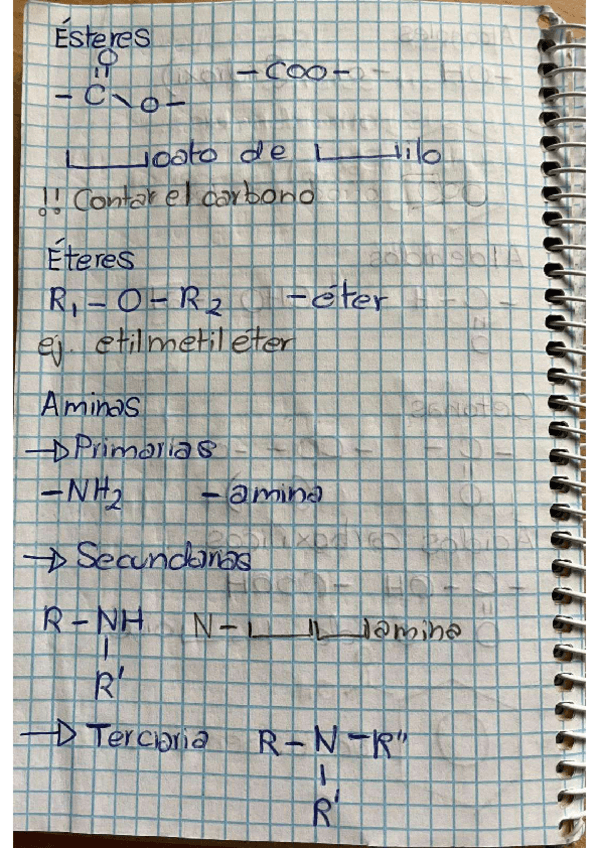 Ésteres
O
||
- C \ O - -COO-
|___|oato de |___|ilo
!! Contar el carbono
Éteres
R₁ - O - R₂ -éter
ej. etilmetiléter
Aminas
→ Primarias
-NH₂ -amina
→ Secundarias
R - NH N-|___||___|amina
|
R'
→ Terciaria R - N - R''
|
R'